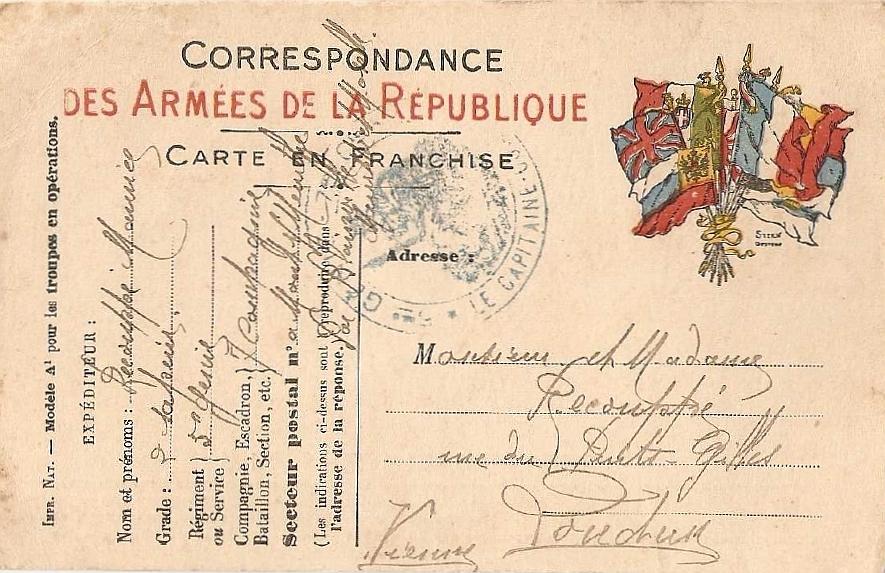 CORRESPONDANCE
DES ARMÉES DE LA RÉPUBLIQUE
CARTE EN FRANCHISE
IMPR. NAT. — Modèle A¹ pour les troupes en opérations.
EXPÉDITEUR :
Nom et prénoms : Recouppé Maurice
Grade : Sapeur
Régiment
ou Service) 5e Génie
Compagnie, Escadron,
Bataillon, Section, etc. Compagnie
Secteur postal n°
(Les indications ci-dessus sont à reproduire dans
l'adresse de la réponse.
LE CAPITAINE
Adresse :
Monsieur et Madame
Recouppé
rue du Puits Gilles
Loudun
Vienne